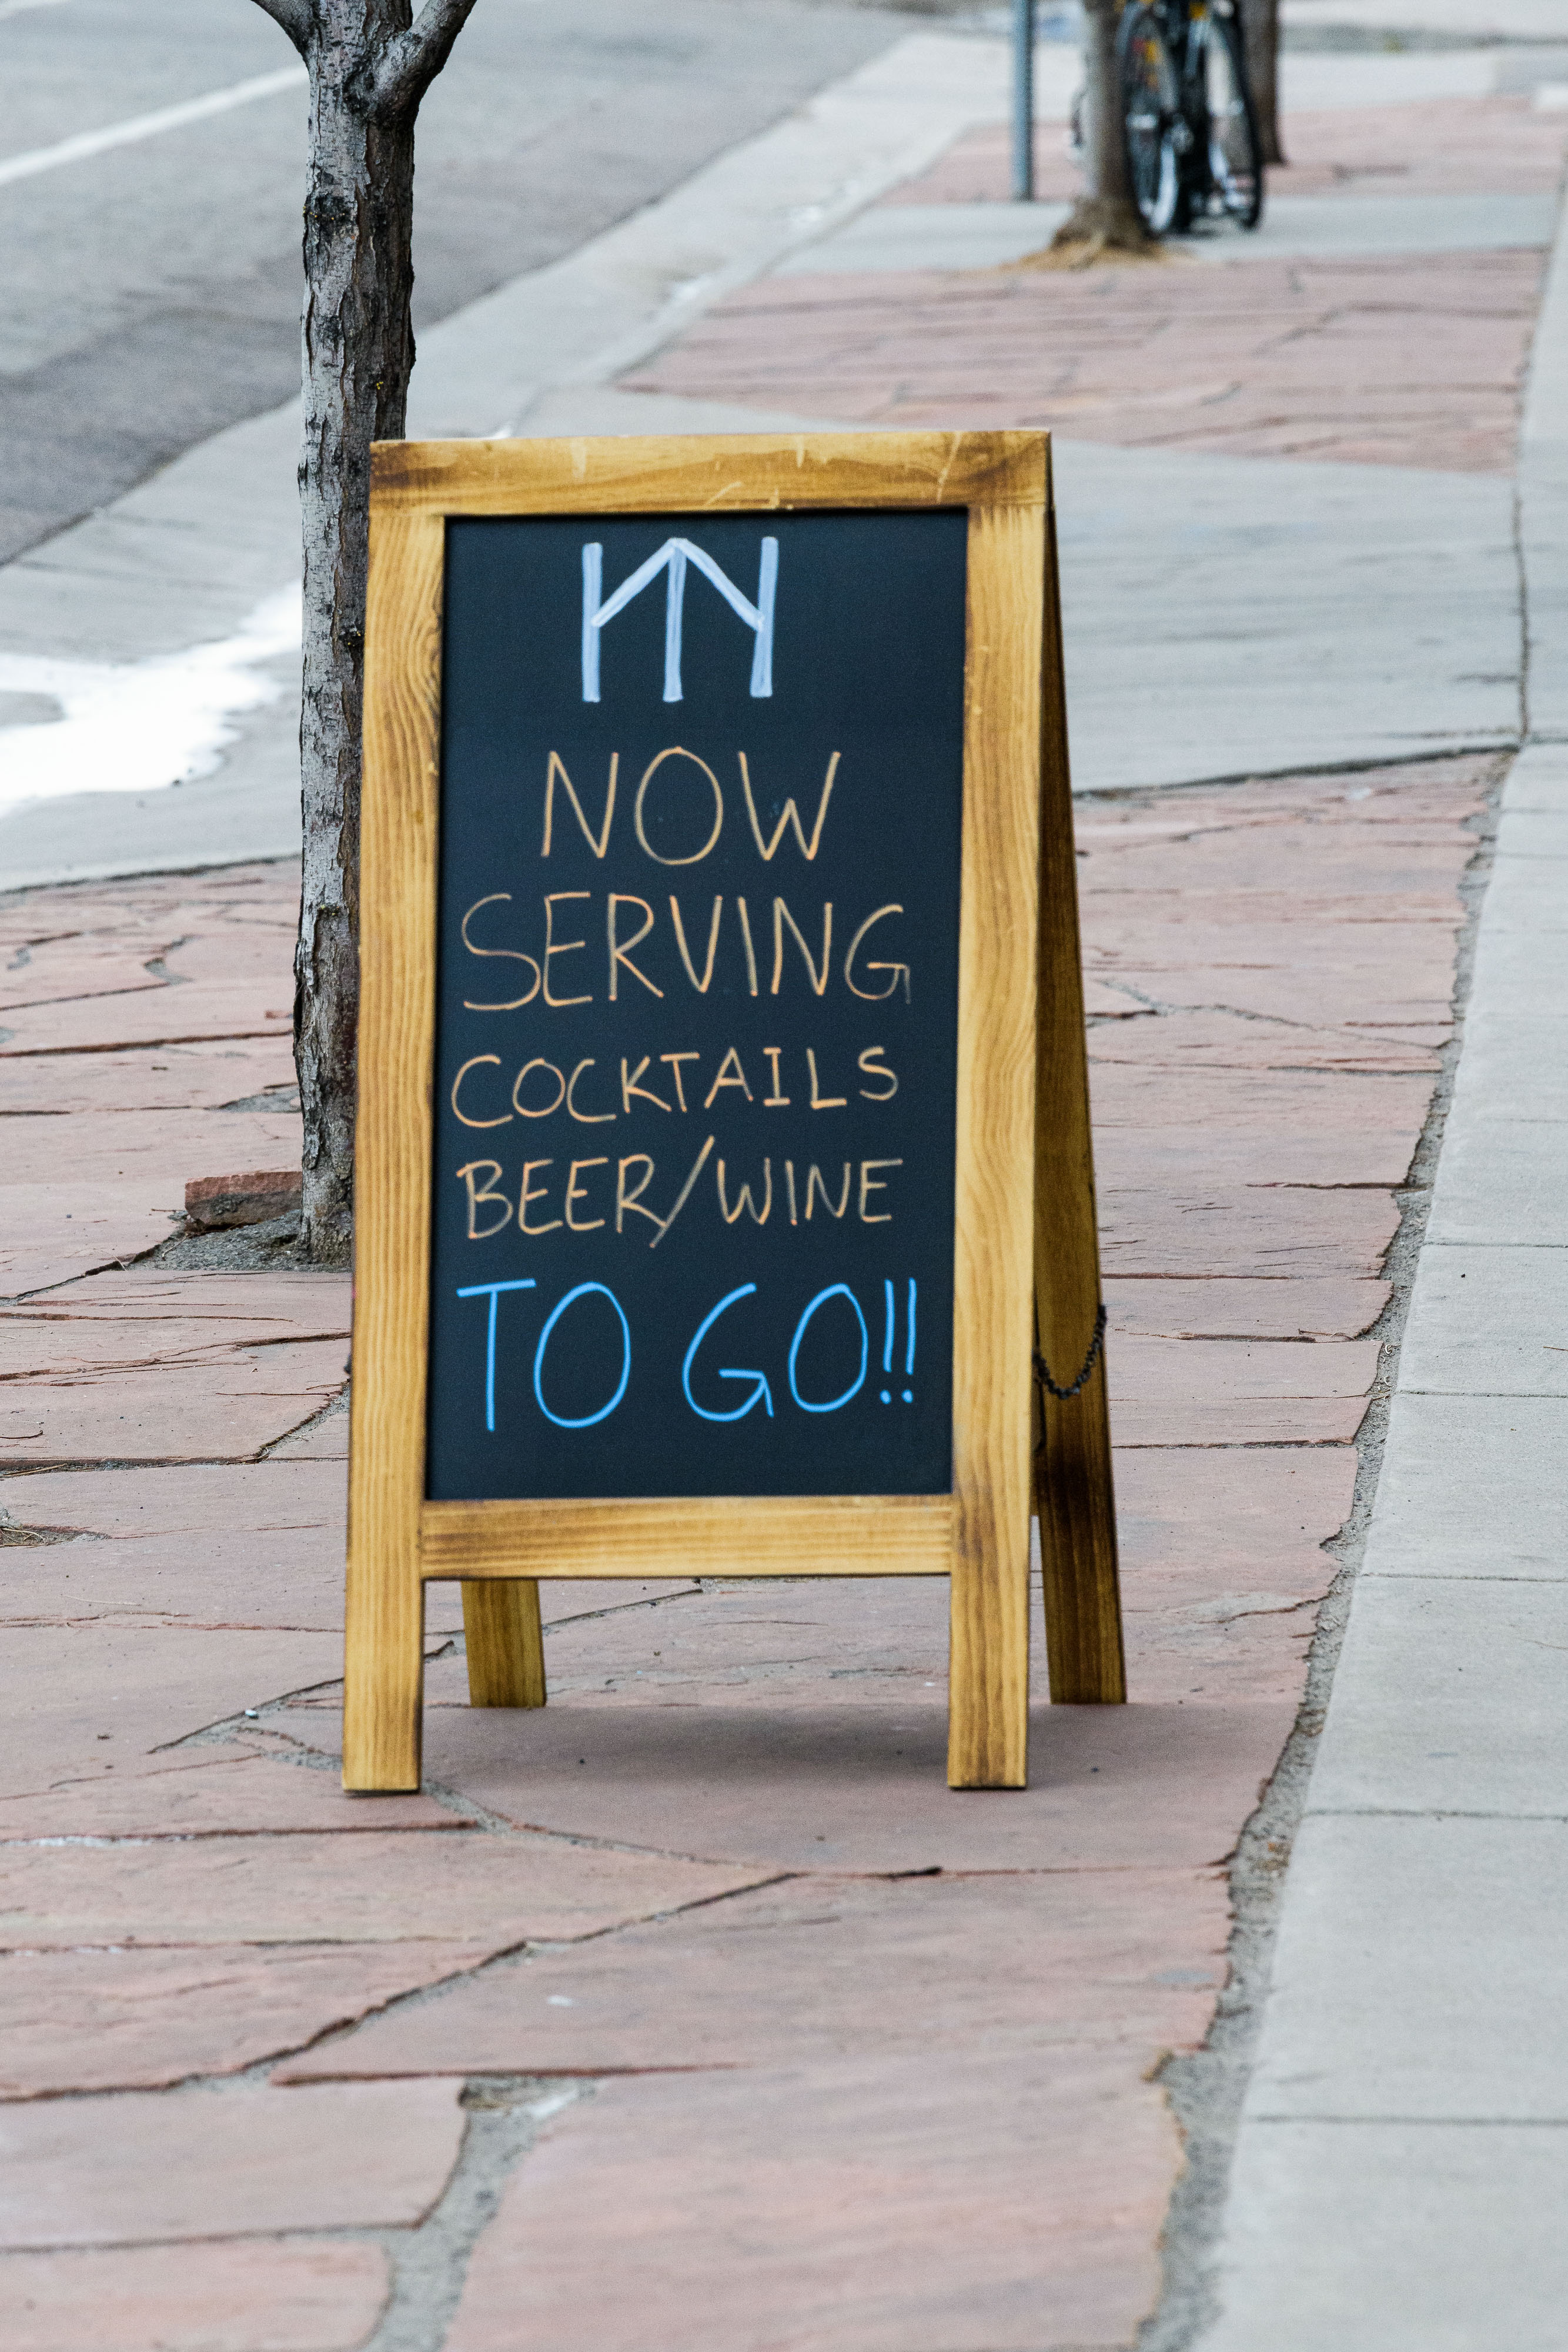 NOW
SERVING
COCKTAILS
BEER/WINE
TO GO!!